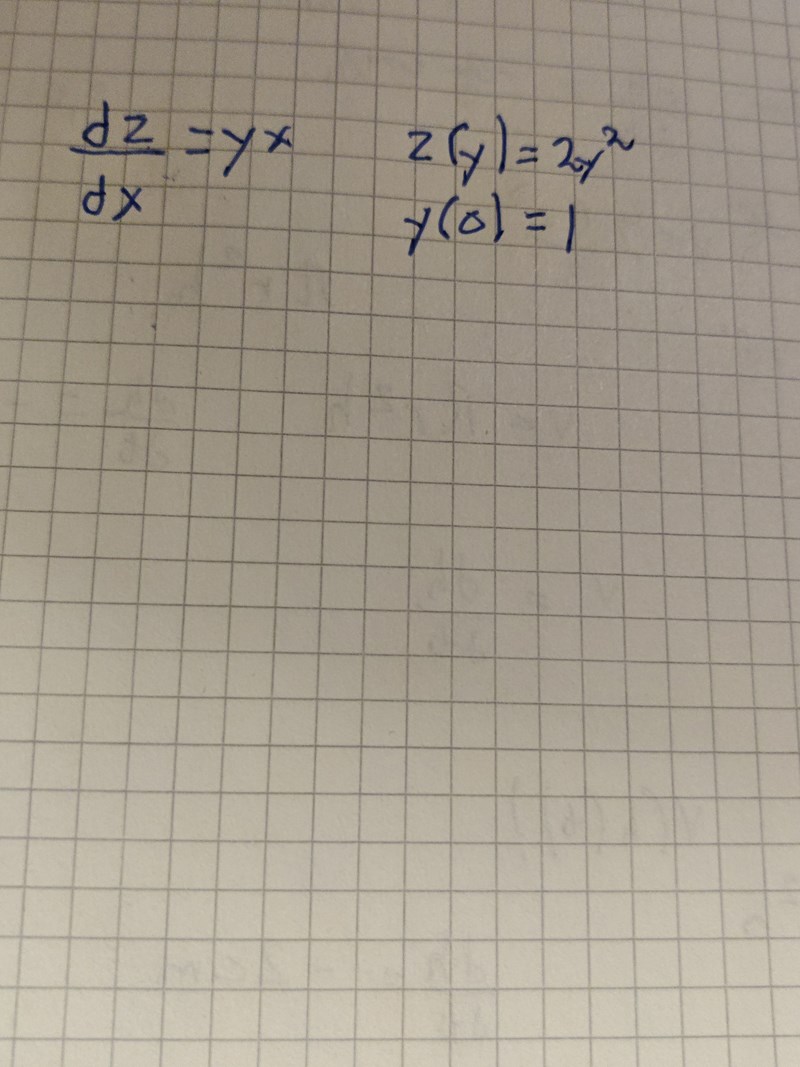 dz/dx = yx z(y) = 2y²
y(0) = 1